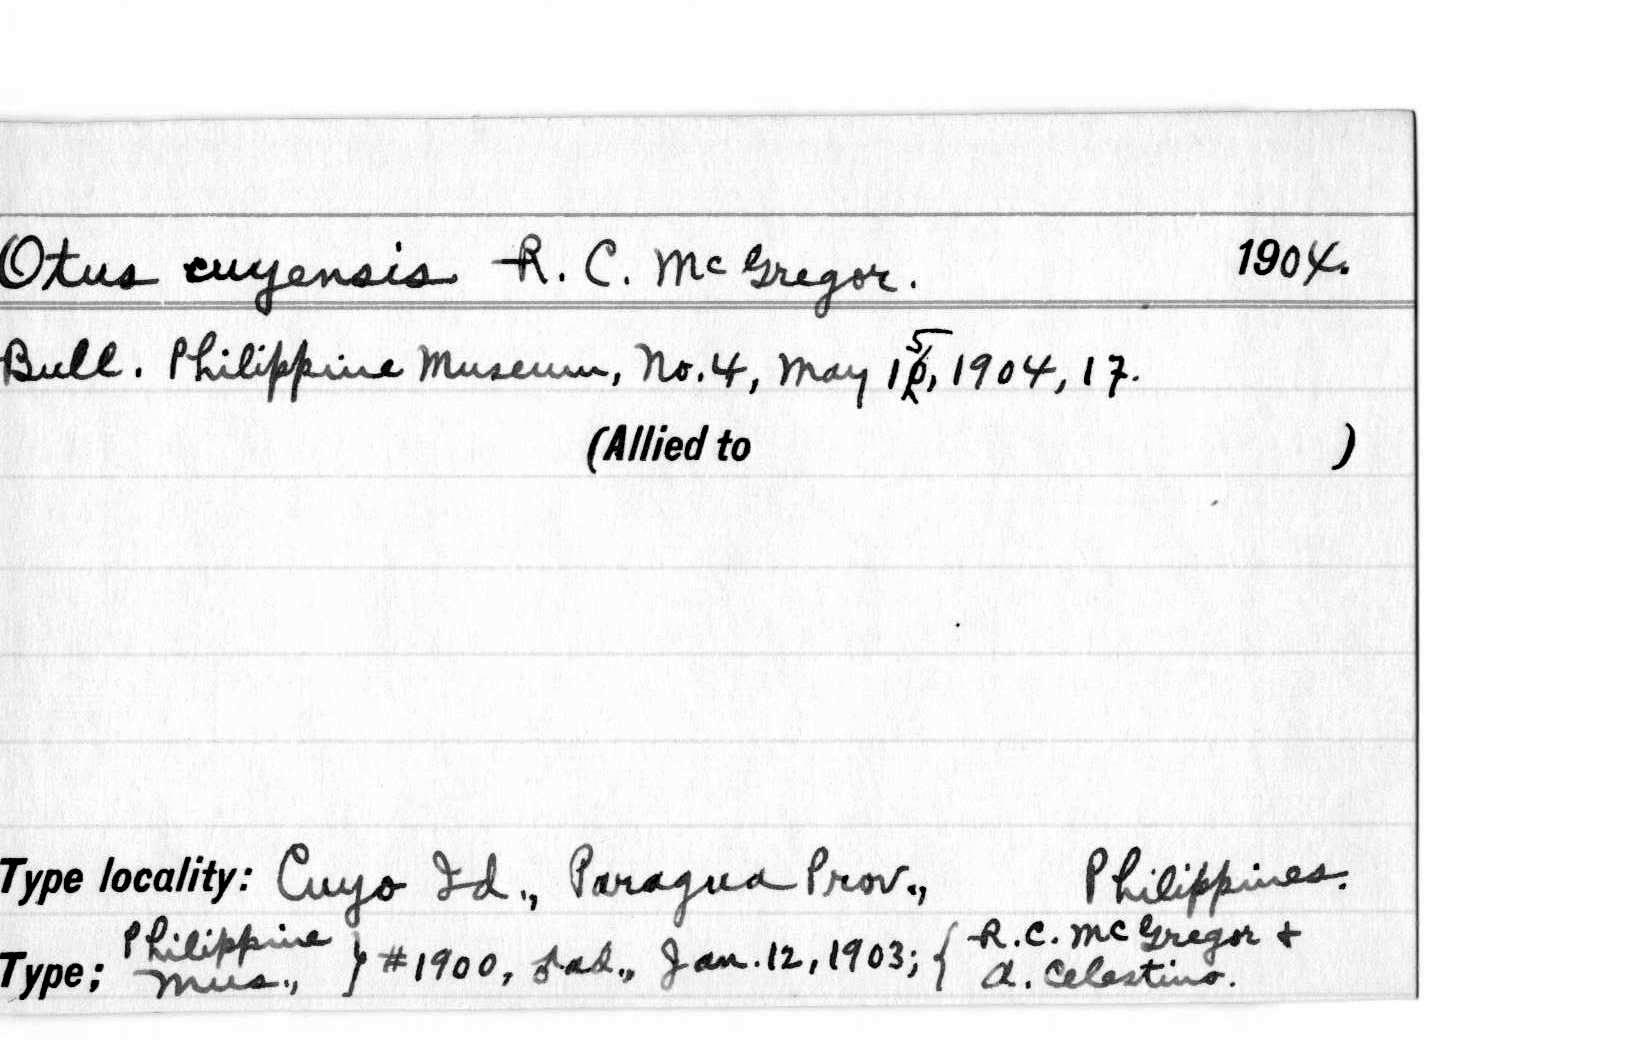 Otus cuyensis R. C. McGregor. 1904.
Bull. Philippine Museum, No. 4, May 15, 1904, 17.
(Allied to )
Type locality: Cuyo Id., Paragua Prov., Philippines.
Type; Philippine Mus., } #1900, ad., Jan. 12, 1903; { R. C. McGregor + A. Celestino.